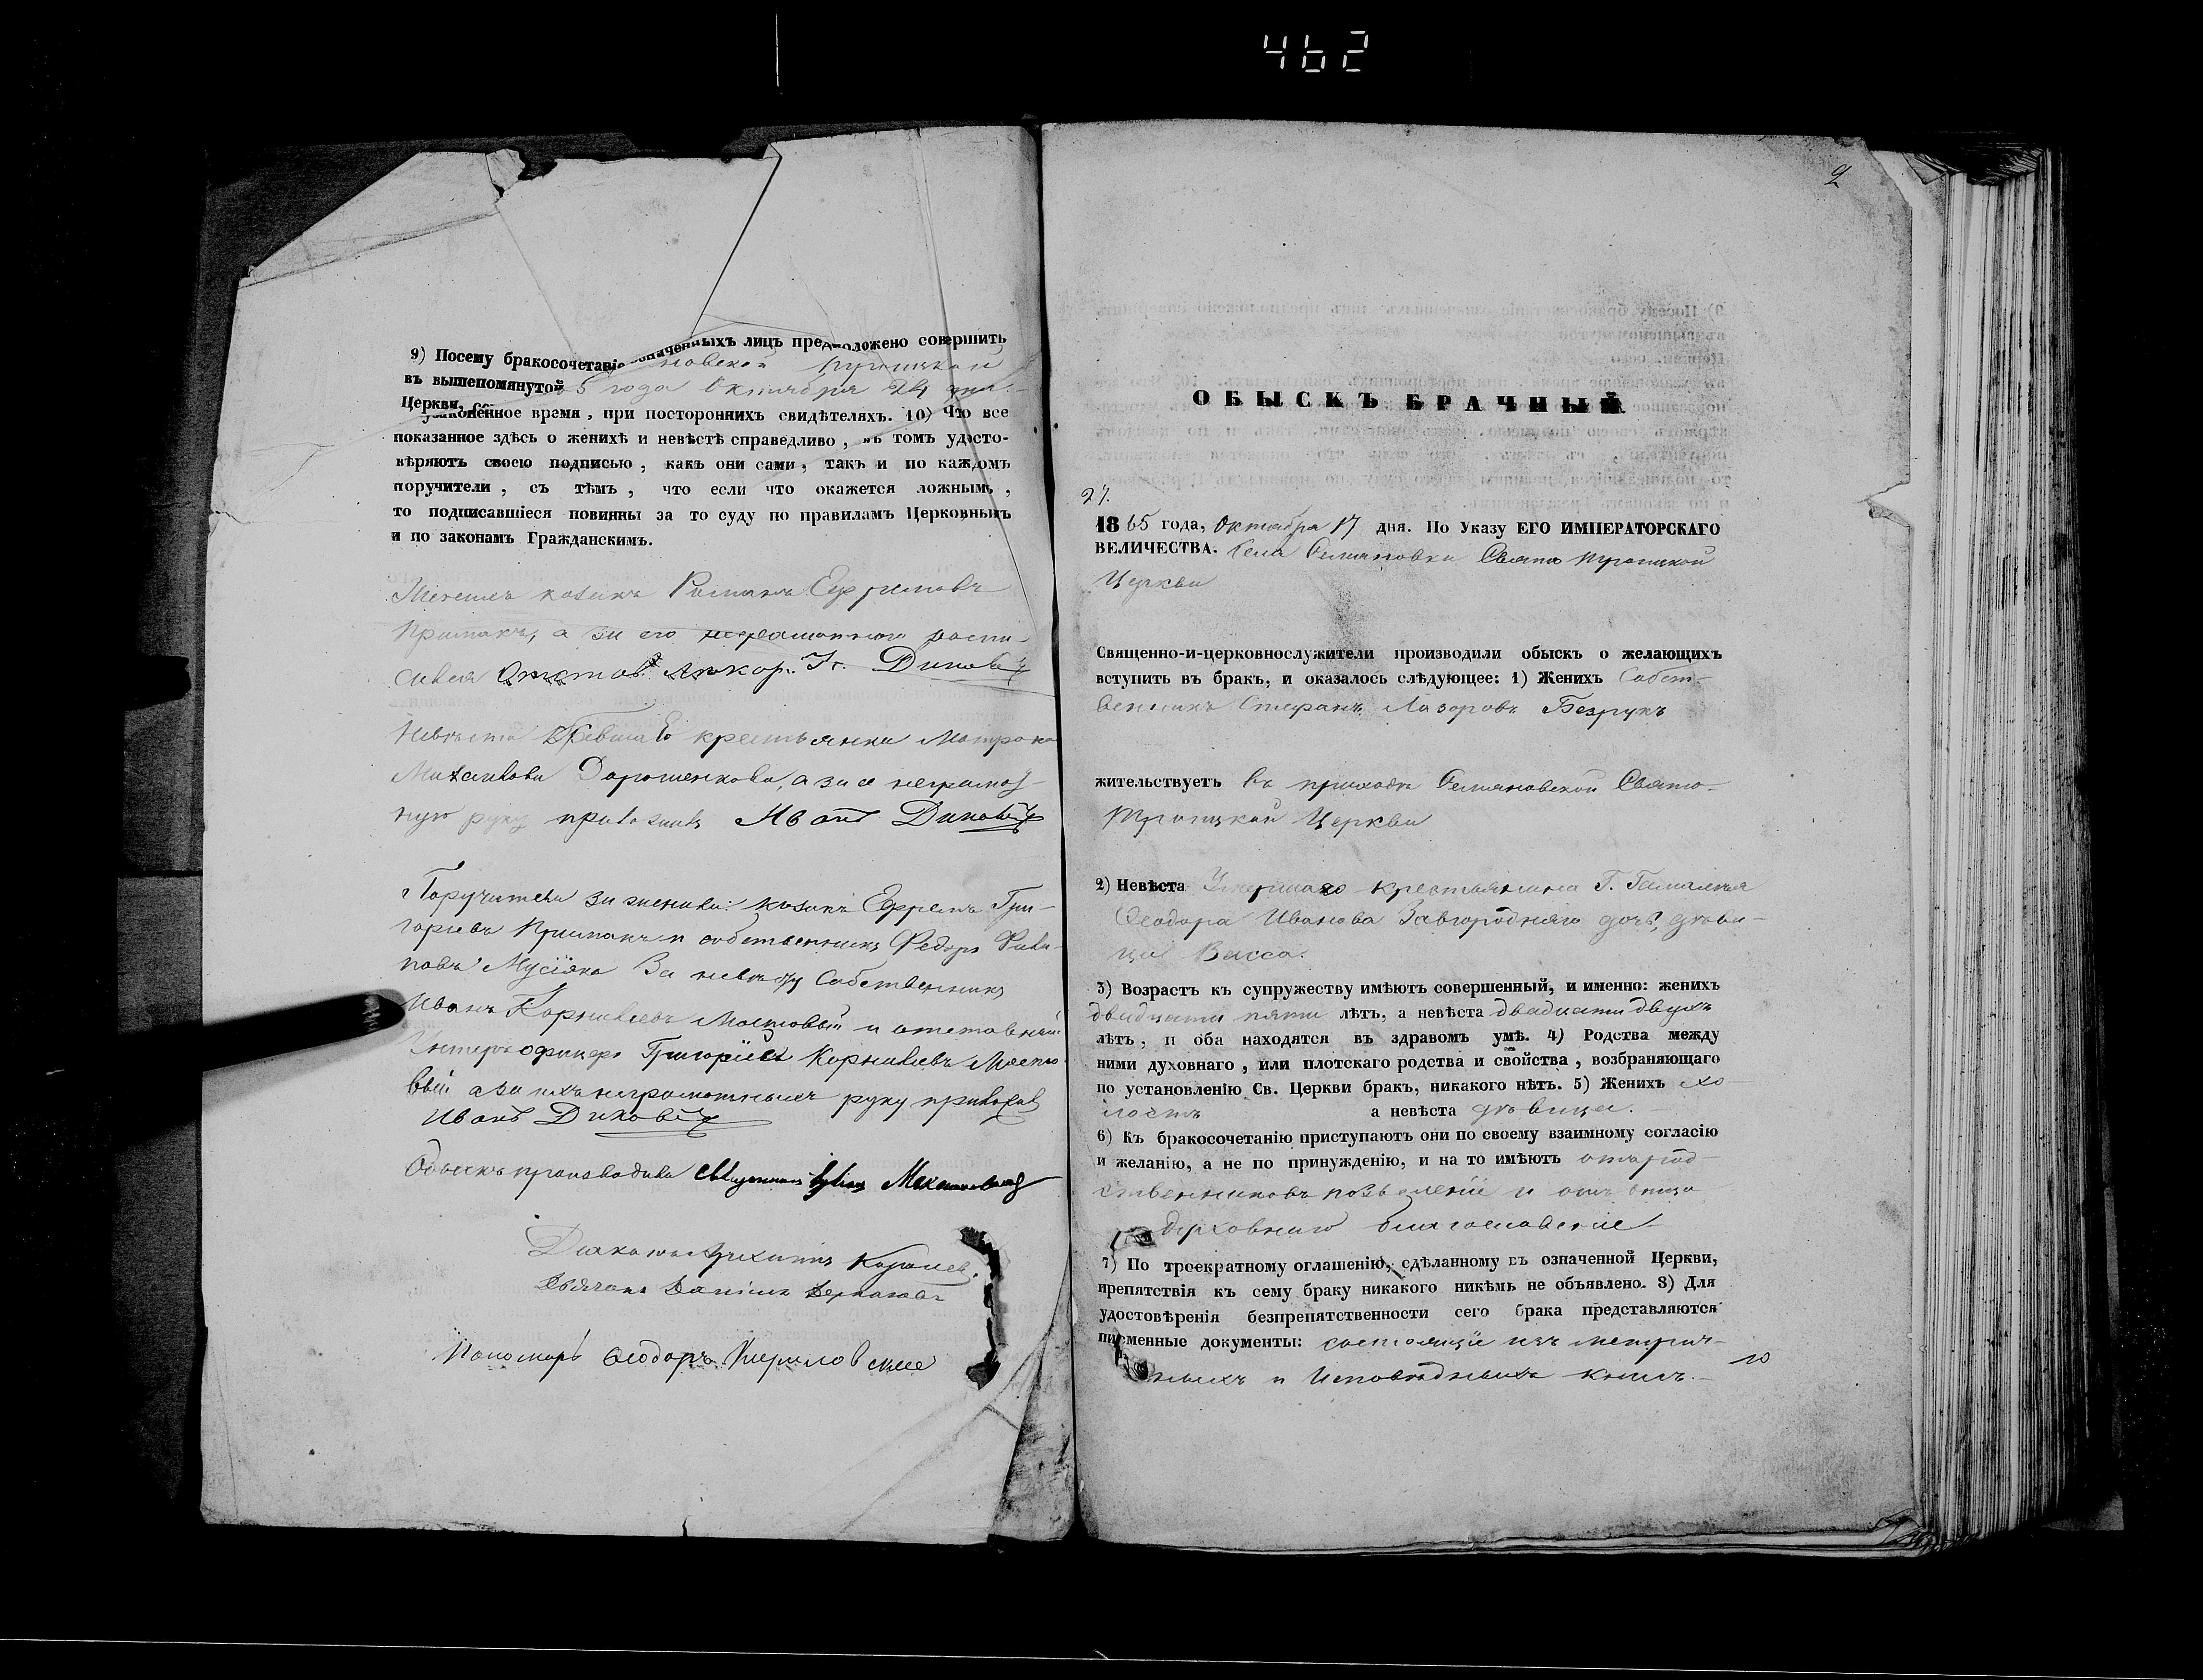 462
9) Посему бракосочетаніе означенныхъ лицъ предположено совершить
въ вышепомянутой новской Троицкой
Церкви, 5 года Октября 24 дня
узаконенное время, при постороннихъ свидѣтеляхъ. 10) Что все
показанное здѣсь о женихѣ и невѣстѣ справедливо, въ томъ удосто-
вѣряютъ своею подписью, какъ они сами, такъ и по каждомъ
поручители, съ тѣмъ, что если что окажется ложнымъ,
то подписавшіеся повинны за то суду по правиламъ Церковнымъ
и по законамъ Гражданскимъ.
козакъ Романъ Ефремовъ
Примакъ, а за его неграмотного роспи-
сался
Невѣста крестьянка Матрона
Михайлова Дорошенкова, а за ея неграмот-
ную руку приложилъ Иванъ
Поручители за жениха: козакъ Ефремъ Гри-
горьевъ Примакъ и собственникъ Федоръ Фили-
повъ Мусіяка За невѣсту Собственникъ
Иванъ Корниліевъ Мостовый и отставный
Унтеръ офицеръ Григорій Корниліевъ Мосто-
вый а за ихъ неграмотныхъ руку приложилъ
Иванъ
Обыскъ производили Священникъ
Діаконъ
Дьячокъ Даніилъ
Пономарь Ѳеодоръ
2
ОБЫСКЪ БРАЧНЫЙ
27.
1865 года, Октября 17 дня. По Указу ЕГО ИМПЕРАТОРСКАГО
ВЕЛИЧЕСТВА. Села Семяновки Свято Троицкой
Церкви
Священно-и-церковнослужители производили обыскъ о желающихъ
вступить въ бракъ, и оказалось слѣдующее: 1) Женихъ Собст-
венникъ Стефанъ Лазоровъ Безрукъ
жительствуетъ въ приходѣ Семяновской Свято-
Троицкой Церкви
2) Невѣста Умершаго крестьянина Г.
Ѳеодора Иванова Завгородняго дочь, дѣви-
ца Васса.
3) Возрастъ къ супружеству имѣютъ совершенный, и именно: женихъ
двадцати пяти лѣтъ, а невѣста двадцати двухъ
лѣтъ, и оба находятся въ здравомъ умѣ. 4) Родства между
ними духовнаго, или плотскаго родства и свойства, возбраняющаго
по установленію Св. Церкви бракъ, никакого нѣтъ. 5) Женихъ хо-
лостъ а невѣста дѣвица.
6) Къ бракосочетанію приступаютъ они по своему взаимному согласію
и желанію, а не по принужденію, и на то имѣютъ отъ род-
ственниковъ позволеніе и отъ отца
духовнаго благословеніе
7) По троекратному оглашенію, сдѣланному въ означенной Церкви,
препятствія къ сему браку никакого никѣмъ не объявлено. 8) Для
удостовѣренія безпрепятственности сего брака представляются
писменные документы: состоящіе изъ метрич-
ныхъ и Исповѣдныхъ книгъ.